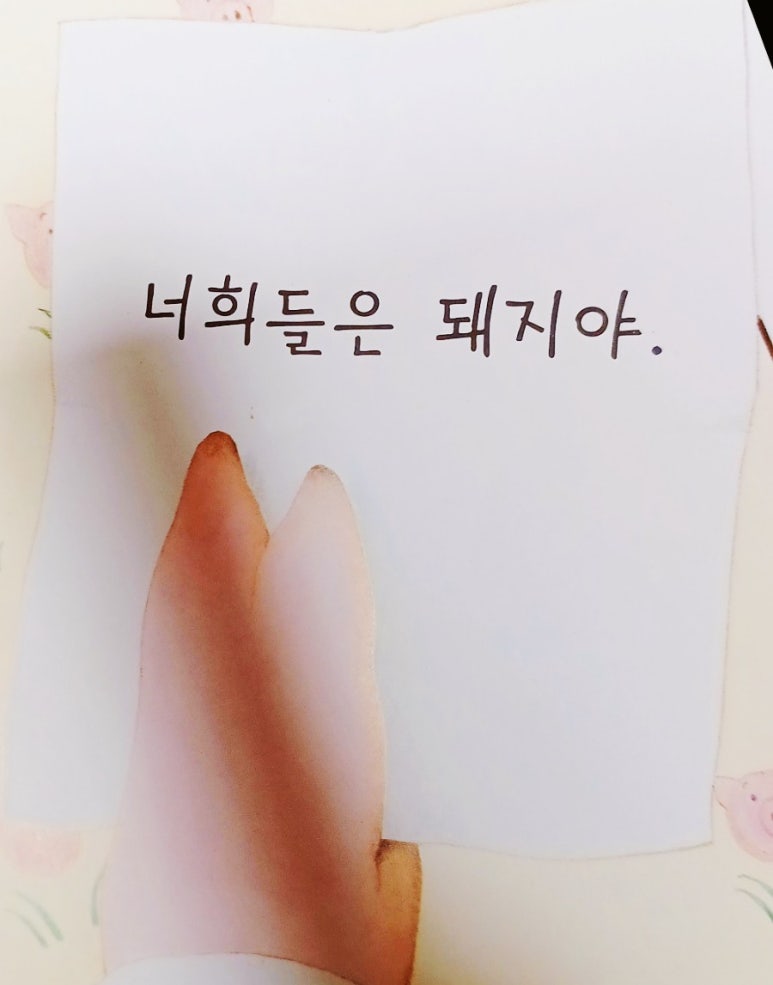 너희들은 돼지야.